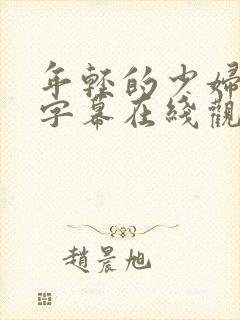 年轻的少婦
字幕在綫觀
趙晨旭